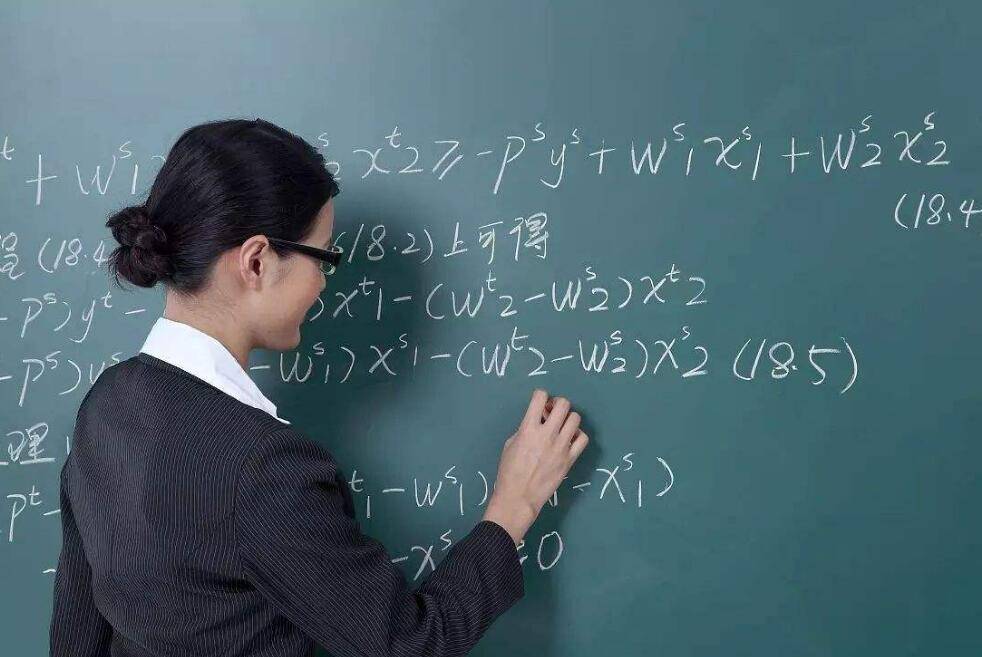 t + W^s_1 x^t_2 ≥ -P^s y^s + W^s_1 x^s_1 + W^s_2 x^s_2
(18.4
(18.4 (18.2)上可得
-P^s)y^t - )x^t_1 - (W^t_2 - W^s_2)x^t_2
-P^s) - W^s_1)x^s_1 - (W^t_2 - W^s_2)x^s_2 (18.5)
理
P^t - t_1 - W^s_1) - x^s_1)
- x^s 0